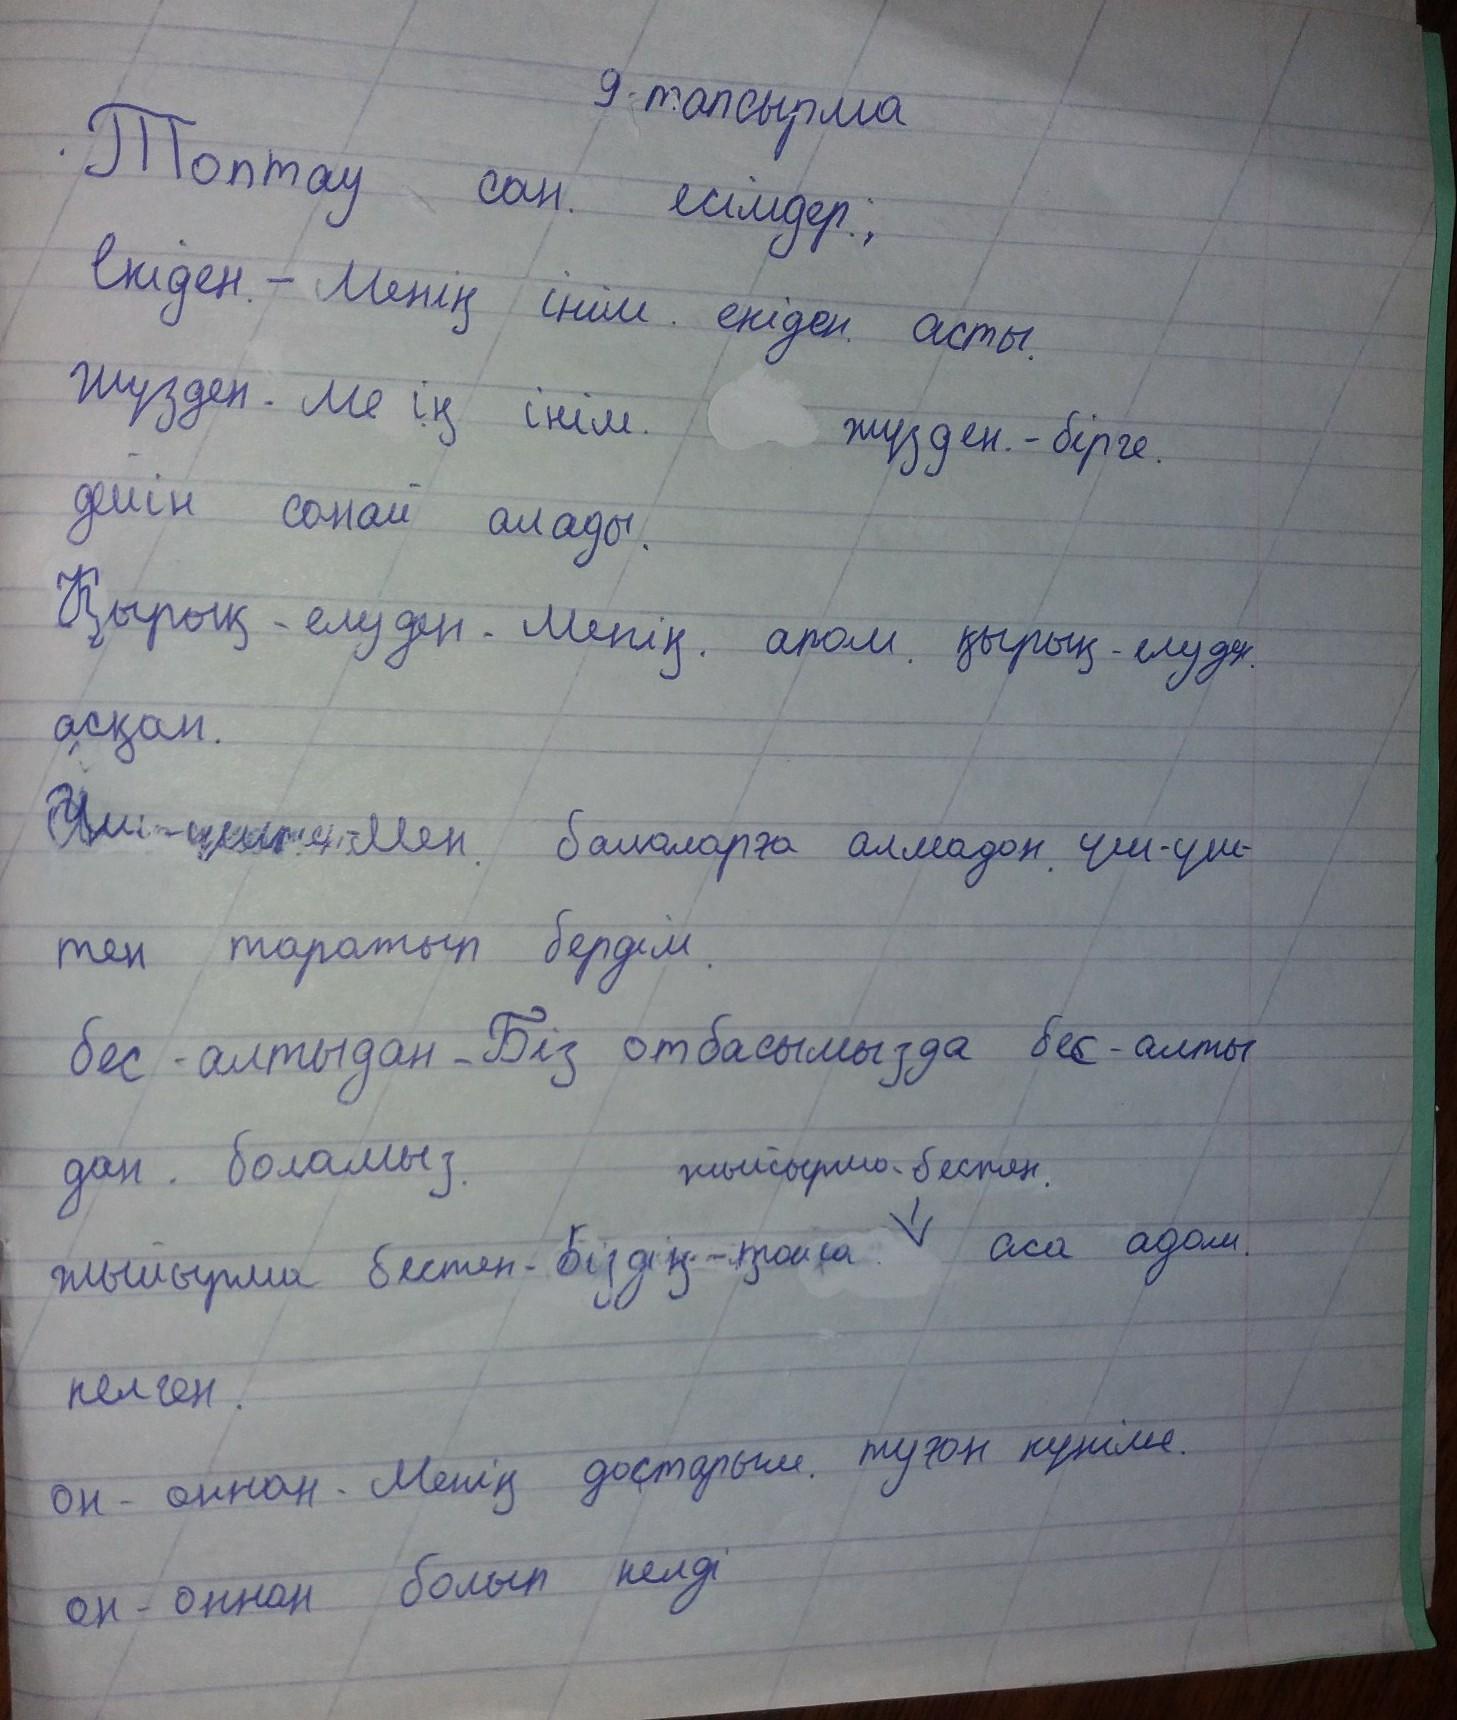 9-тапсырма
Топтау сан есімдер;
Екіден - Менің інім екіден асты.
жүзден - Ме ің інім жүзден - бірге.
дейін санай алады.
Қырық - елуден - Менің апам қырық - елуден
асқан.
Үш - үштен - Мен балаларға алмадан үш-үш-
тен таратып бердім.
бес - алтыдан - Біз отбасымызда бес - алты
дан боламыз. жыйырма-бестен.
жыйырма бестен - Біздің - аса адам
келген.
он - оннан - Менің достарым туған күніме.
он - оннан болып келді